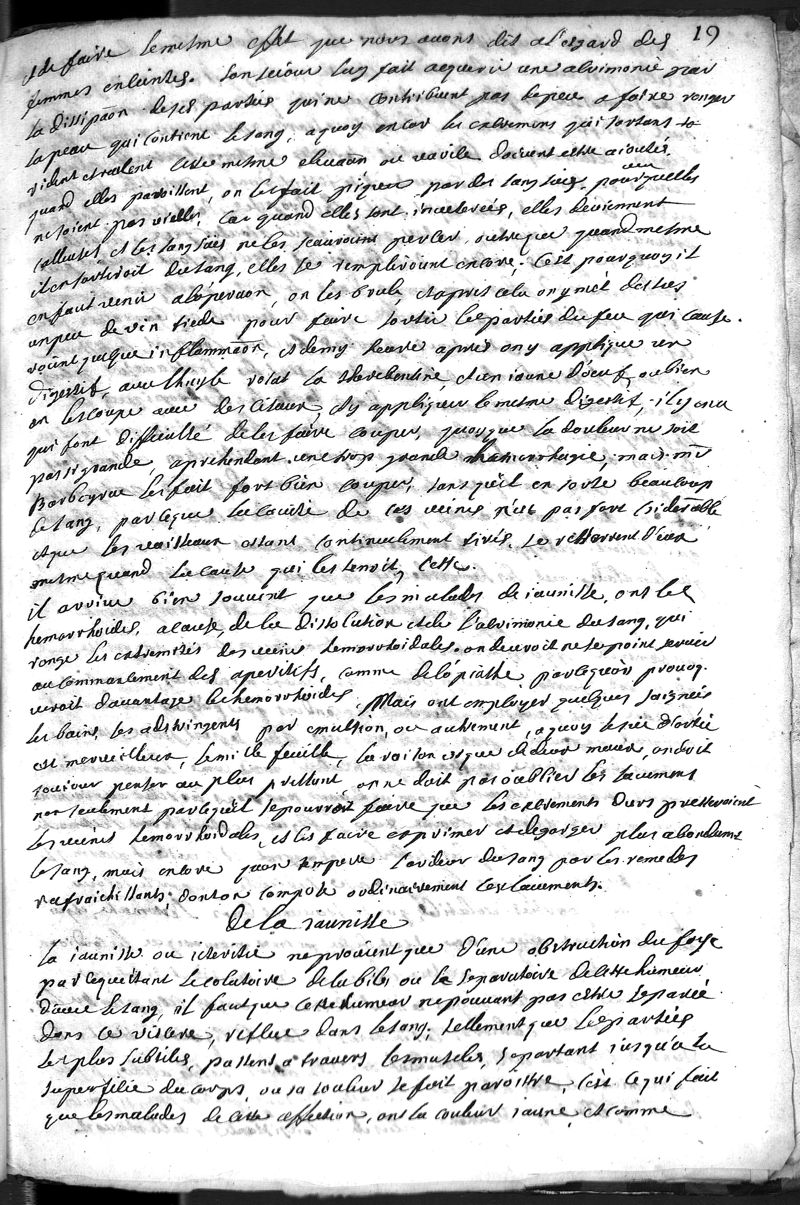 19
et de faire le mesme effet que nous avons dit a l'esgard des
femmes enceintes. son sejour luy fait acquerir une alrimonie par
la dissipaõn de ses parties qui ne contribuent pas de peu a faire ronger
la peau qui contient le sang, a quoy encor les extremens qui sortans
et coulent cette mesme doivent estre aioutés
quand elles paroissent, on les fait piquer par des sansües, pourveu quelles
ne soient pas vielles, Car quand elles sont inveterées, elles deviennent
calleuses, et les sansües ne les scauroient percer, outreque quand mesme
il en sortiroit du sang, elles se rempliroient encore; C'est pourquoy il
en faut venir a loperaõn, on les brule, et apres cela on y met dessus
un peu de vin tiede pour faire sortir les parties du feu qui cause
roient quelque inflammaõn, et demy heure aprés on y applique un
digestif, avec lhuyle rosat la therebentine, et un iaune d'oeuf, ou bien
on les coupe avec des Ciseaux, et y appliquer le mesme digestif, il y en a
qui font difficulté de les faire couper, quoyque la douleur ne soit
pas si grande, aprehendant une trop grande hamorrhagie, mais mr
Barbeyrac les fait fort bien couper, sans quil en sorte beaucoup
de sang, parceque la cavité de ces veines n'est pas fort Csiderable
et que les vaisseaux estant continuellement tirés, se resserrent d'eux
mesme quand la cause qui les tenoit, Cesse.
il arrive bien souvent que les malades de iaunisse, ont les
hemorrhoides, a cause de la dissolution et de l'alrimonie du sang, qui
ronge les extremités des veines hemorrhoidales. on devroit ne se point servir
au commancement des aperitifs, comme de lopiatte parcequon provoq.
ueroit davantage les hemorrhoides. Mais ont employer quelques saignées
les bains, les adstringents par emulsion, ou autrement, a quoy le sue d'ortie
est merveilleux, le mille feuille, la raison est que de deux maux, on doit
toujour penser au plus pressant, on ne doit pas oublier les lavements
non seulement parcequil se pourroit faire que les extrements durs presseroient
les veines hemorrhoidales, et les faire exprimer et degorger plus abondamt
le sang, mais encore quon tempere l'ardeur du sang par les remedes
rafraichissants; dont on compose ordinairement les lavements.
De la iaunisse
La iaunisse ou icteritie ne provient que d'une obstruction du foye
par ce quetant le colatoire de la bile ou le separatoire de cette humeur
d'avec le sang, il faut que cette humeur ne pouvant pas estre separée
dans ce viscere, reflue dans le sang, tellement que les parties
les plus subtiles, passent a travers les muscles, se portant jusqu'a la
superficie du corps, ou sa couleur se fait paroistre, C'est ce qui fait
que les malades de cette affection, ont la couleur iaune, et comme